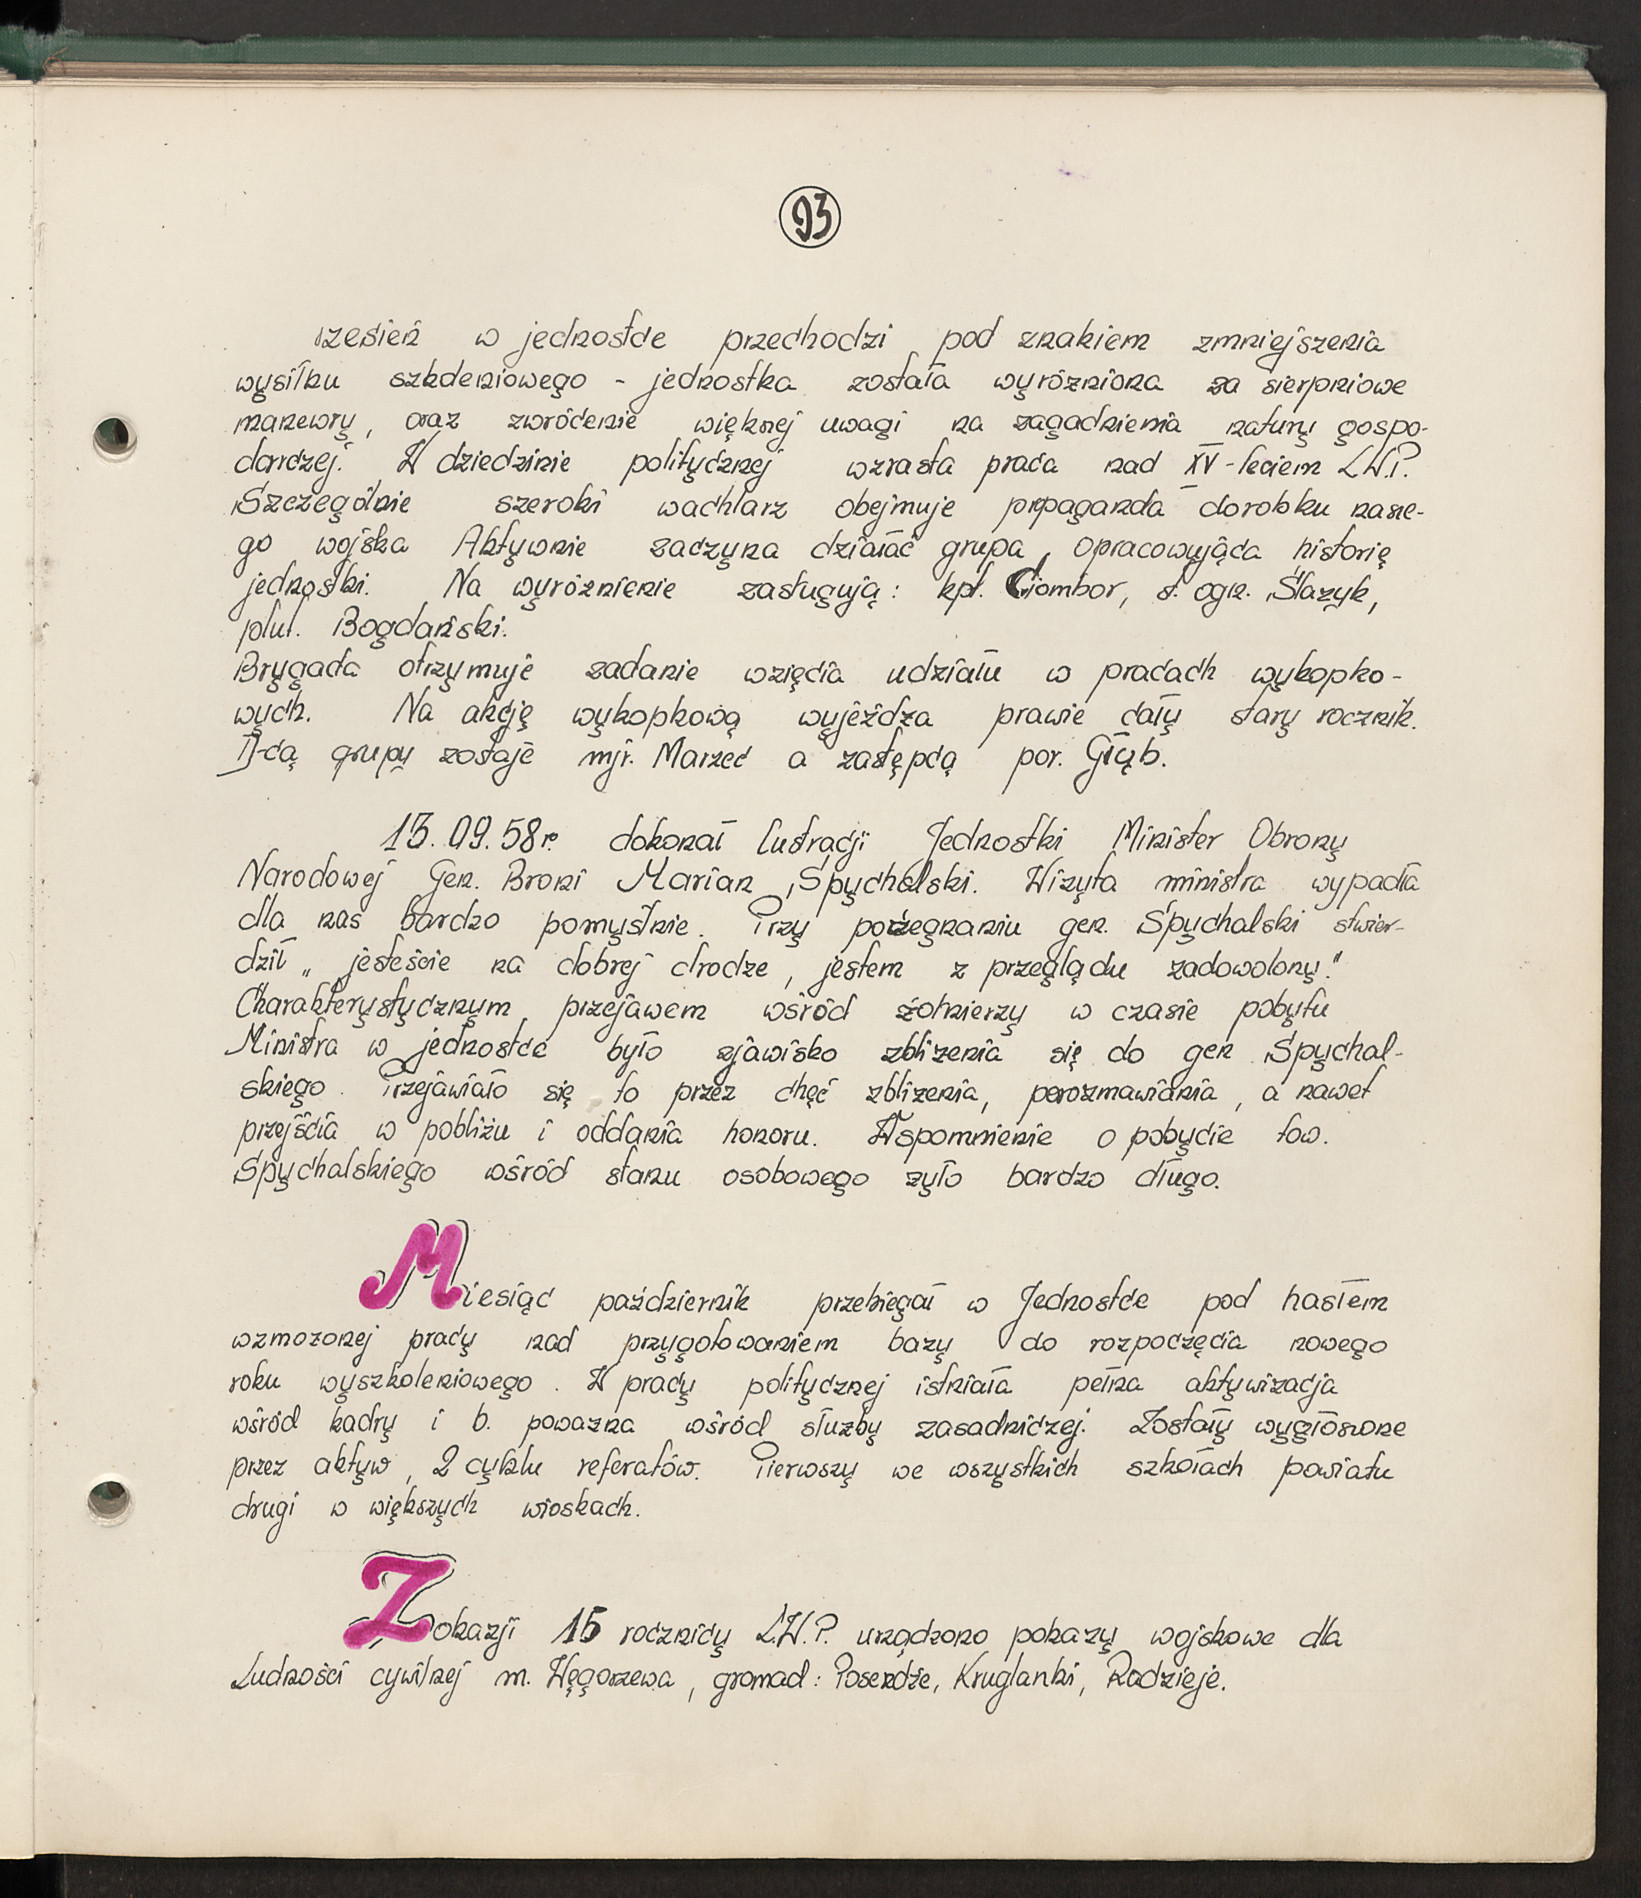 93
rzesień w jednostce przechodzi pod znakiem zmniejszenia
wysiłku szkoleniowego - jednostka została wyróżniona za sierpniowe
manewry, oraz zwrócenie większej uwagi na zagadnienia natury gospo-
darczej. W dziedzinie politycznej wzrasta praca nad XV-leciem L.W.P.
Szczególnie szeroki wachlarz obejmuje propaganda dorobku nasze-
go wojska Aktywnie zaczyna działać grupa, opracowująca historię
jednostki. Na wyróżnienie zasługują: kpt. Ciombor, st. ogn. Ślazyk,
plut. Bogdański.
Brygada otrzymuje zadanie wzięcia udziału w pracach wykopko-
wych. Na akcję wykopkową wyjeżdża prawie cały stary rocznik.
D-cą grupy zostaje mjr. Marzec a zastępcą por. Głąb.
13.09.58r. dokonał lustracji Jednostki Minister Obrony
Narodowej Gen. Broni Marian Spychalski. Wizyta ministra wypadła
dla nas bardzo pomyślnie. Przy pożegnaniu gen. Spychalski stwier-
dził „jesteście na dobrej drodze, jestem z przeglądu zadowolony."
Charakterystycznym przejawem wśród żołnierzy w czasie pobytu
Ministra w jednostce było zjawisko zbliżenia się do gen Spychal-
skiego. Przejawiało się to przez chęć zbliżenia, porozmawiania, a nawet
przejścia w pobliżu i oddania honoru. Wspomnienie o pobycie tow.
Spychalskiego wśród stanu osobowego żyło bardzo długo.
Miesiąc październik przebiegał w Jednostce pod hasłem
wzmożonej pracy nad przygotowaniem bazy do rozpoczęcia nowego
roku wyszkoleniowego. W pracy politycznej istniała pełna aktywizacja
wśród kadry i b. poważna wśród służby zasadniczej. Zostały wygłoszone
przez aktyw, 2 cyklu referatów. Pierwszy we wszystkich szkołach powiatu
drugi w większych wioskach.
Z okazji 15 rocznicy L.W.P. urządzono pokazy wojskowe dla
Ludności cywilnej m. Węgorzewa, gromad: Poserdże, Kruglanki, Radzieje.